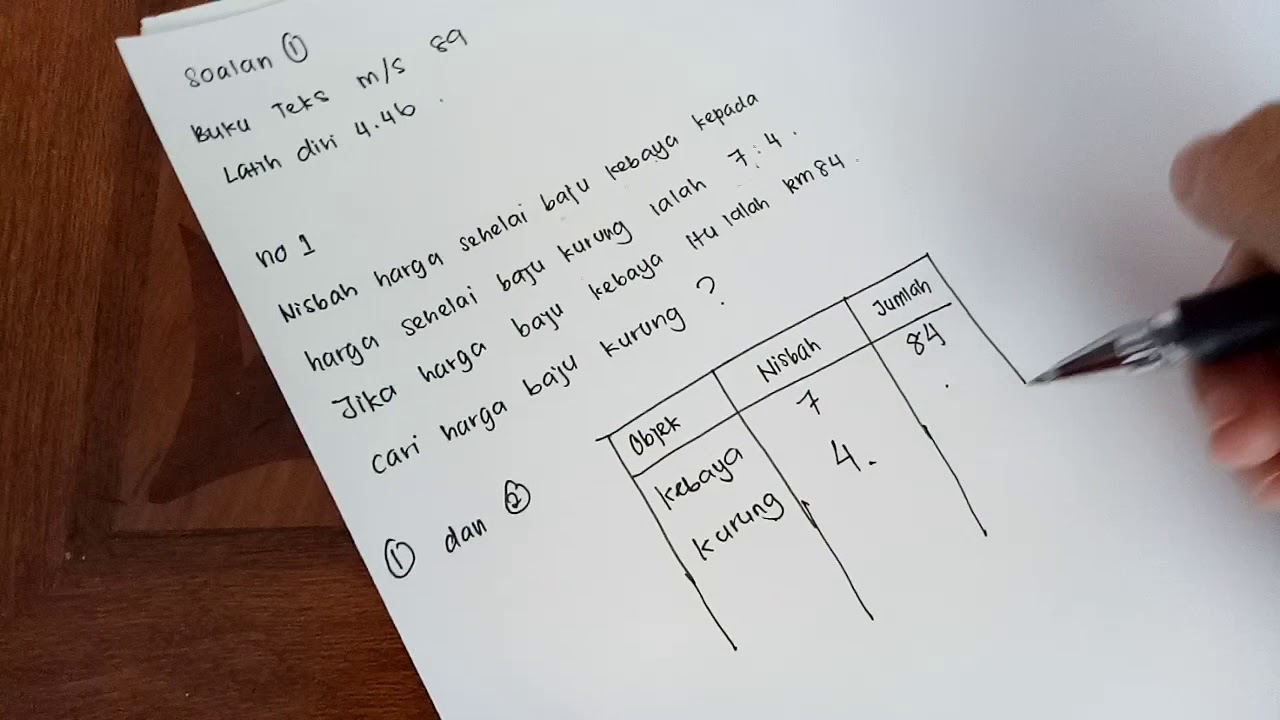 Soalan ①
Buku Teks m/s 89
Latih diri 4.4b.
no 1
Nisbah harga sehelai baju kebaya kepada
harga sehelai baju kurung ialah 7:4.
Jika harga baju kebaya itu ialah RM84.
Cari harga baju kurung?
① dan ②
Objek Nisbah Jumlah
Kebaya 7 84
Kurung 4.